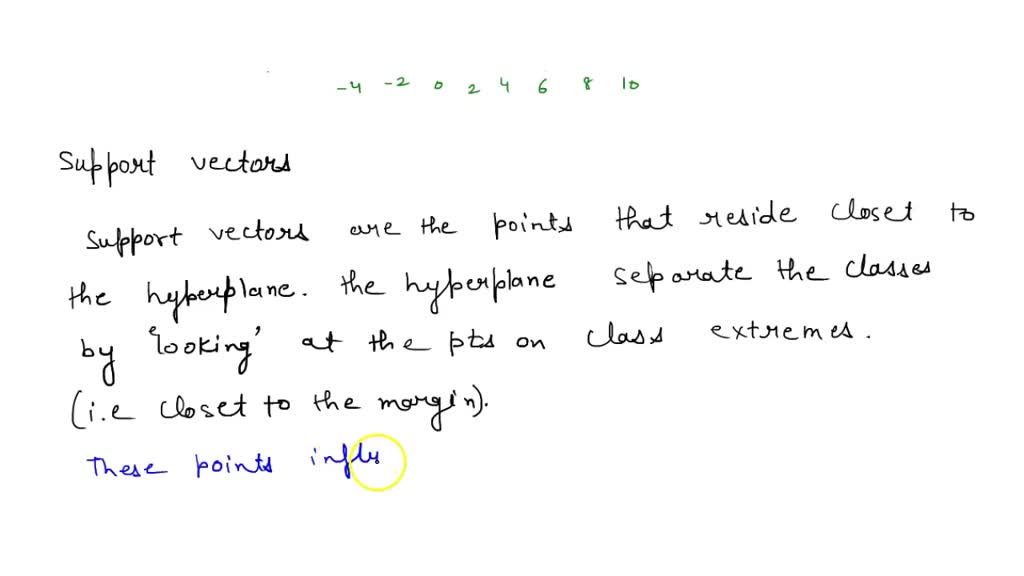 -4 -2 0 2 4 6 8 10
Support vectors
Support vectors are the points that reside closet to
the hyperplane. the hyperplane separate the classes
by 'looking' at the pts on class extremes.
(i.e closet to the margin).
These points influ